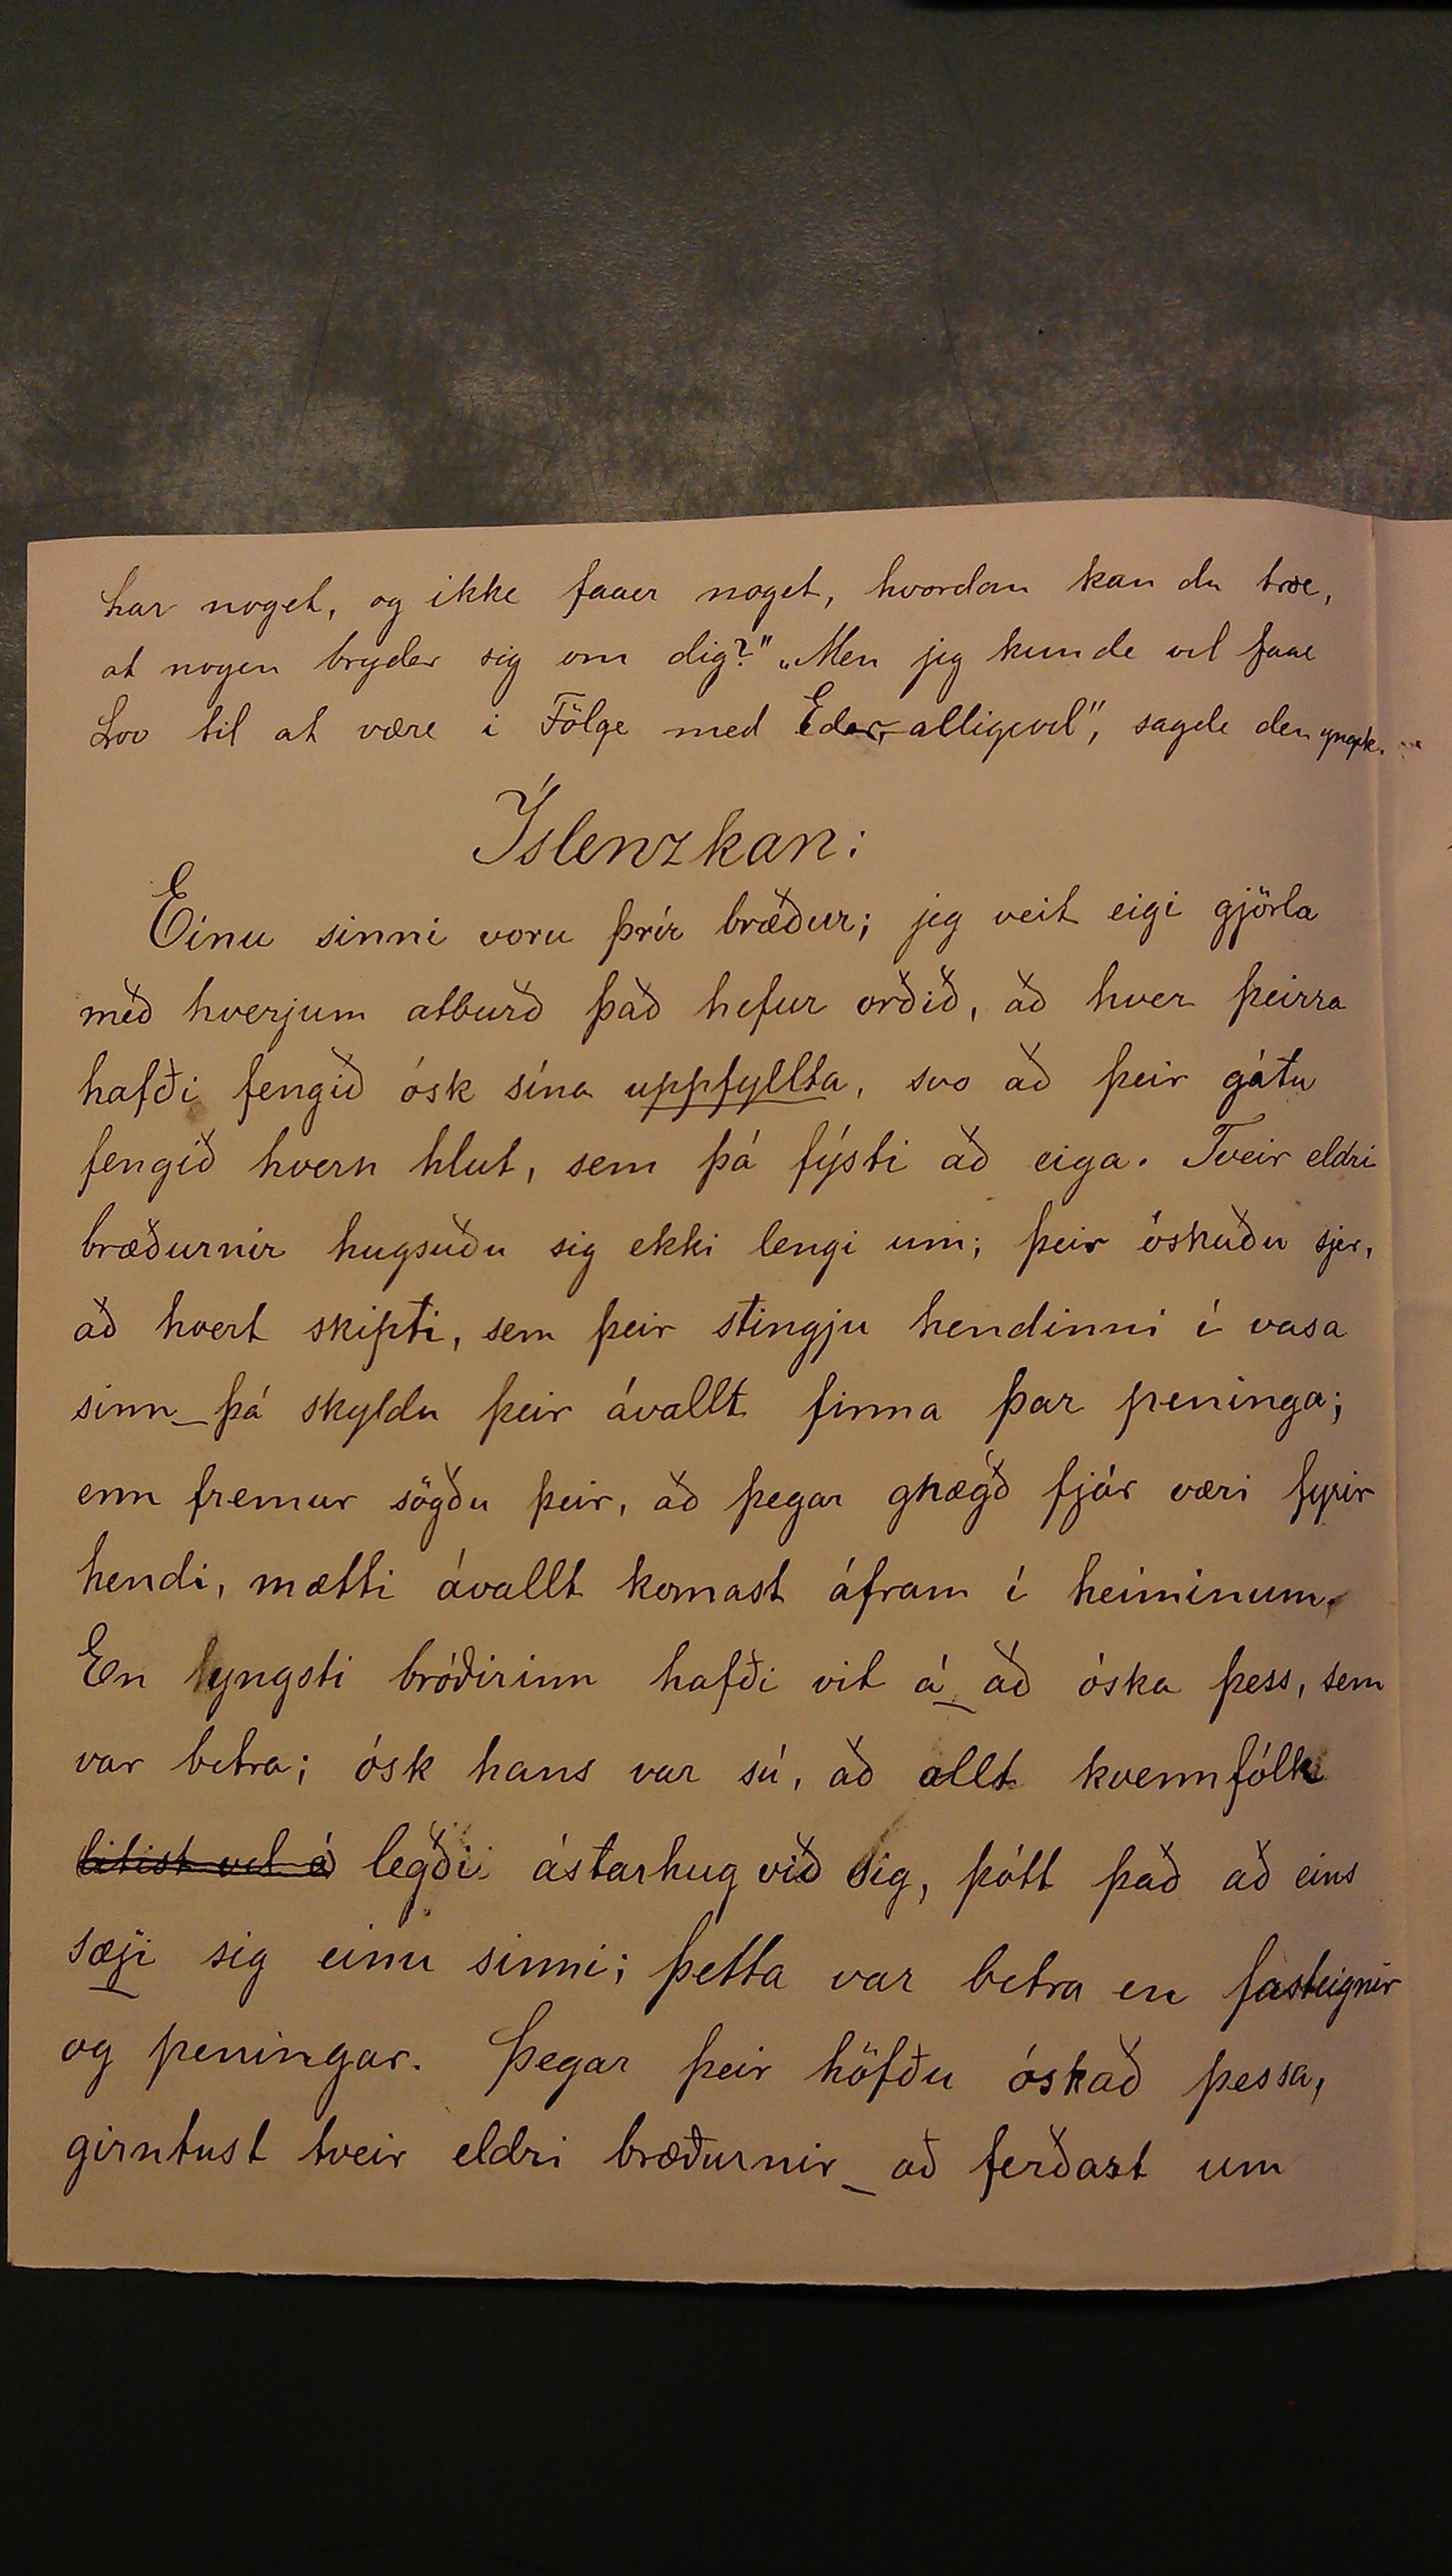 har noget, og ikke faaer noget, hvordan kan du troe,
at nogen bryder sig om dig?" „Men jeg kunde vel faae
Lov til at være i Fölge med Eder, alligevel", sagde den yngste.
Íslenzkan:
Einu sinni voru þrír bræður; jeg veit eigi gjörla
með hverjum atburð það hefur orðið, að hver þeirra
hafði fengið ósk sína uppfyllta, svo að þeir gátu
fengið hvern hlut, sem þá fýsti að eiga. Tveir eldri
bræðurnir hugsuðu sig ekki lengi um; þeir óskuðu sjer,
að hvert skipti, sem þeir stingju hendinni í vasa
sinn þá skyldu þeir ávallt finna þar peninga;
enn fremur sögðu þeir, að þegar gnægð fjár væri fyrir
hendi, mætti ávallt komast áfram í heiminum.
En yngsti bróðirinn hafði vit á að óska þess, sem
var betra; ósk hans var sú, að allt kvennfólk
litist vel á legði ástarhug við sig, þótt það að eins
sæji sig einu sinni; þetta var betra en fasteignir
og peningar. Þegar þeir höfðu óskað þessa,
girntust tveir eldri bræðurnir að ferðast um